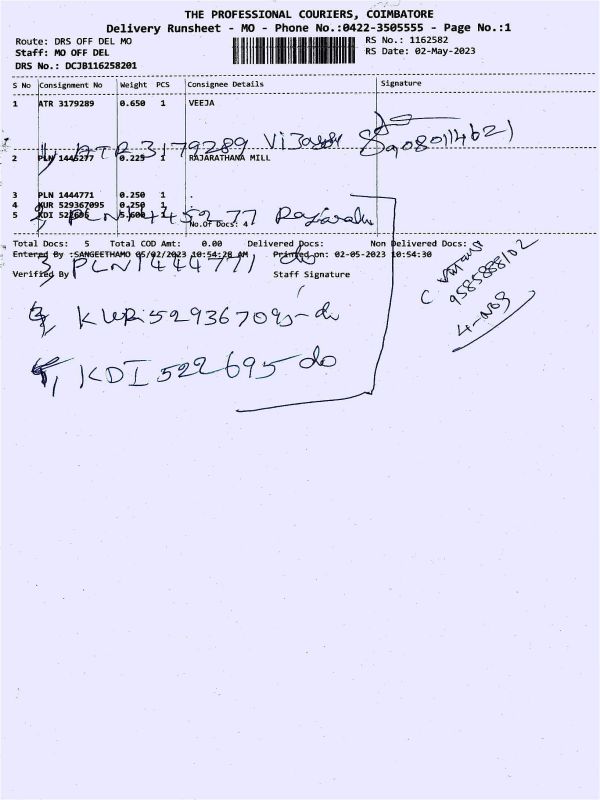 THE PROFESSIONAL COURIERS, COIMBATORE
Delivery Runsheet - MO - Phone No.:0422-3505555 - Page No.:1
Route: DRS OFF DEL MO RS No.: 1162582
Staff: MO OFF DEL RS Date: 02-May-2023
DRS No.: DCJB116258201
S No Consignment No Weight PCS Consignee Details Signature
1 ATR 3179289 0.650 1 VEEJA
1) ATR 3179289 89080114621
2 PLN 1445277 0.225 1 RAJARATHANA MILL
3 PLN 1444771 0.250 1
4 KUR 529367095 0.250 1
5 KDI 522695 5.600 1
No.Of Docs: 4
PLN 1445277
Total Docs: 5 Total COD Amt: 0.00 Delivered Docs: Non Delivered Docs:
Entered By :SANGEETHAMO 05/02/2023 10:54:28 AM Printed on: 02-05-2023 10:54:30
3, PLN1444771 do
Verified By Staff Signature
9585888102
4-Nos
KUR 529367095-do
KDI 522695 do